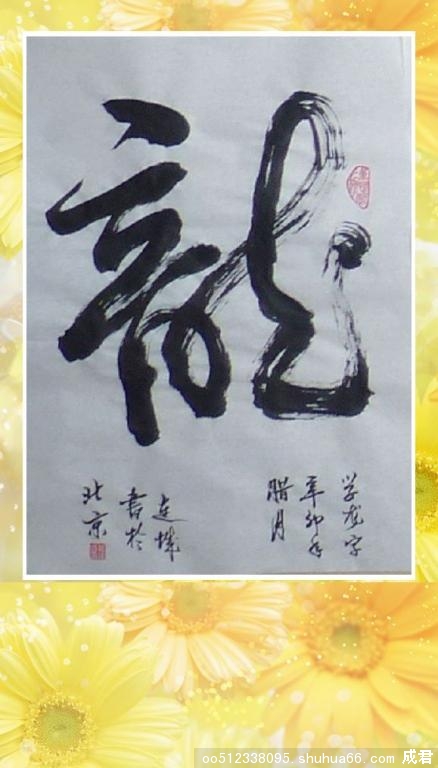 龍
学龙字
辛卯年
腊月
连城
書於
北京
oo512338095.shuhua66.com 成君